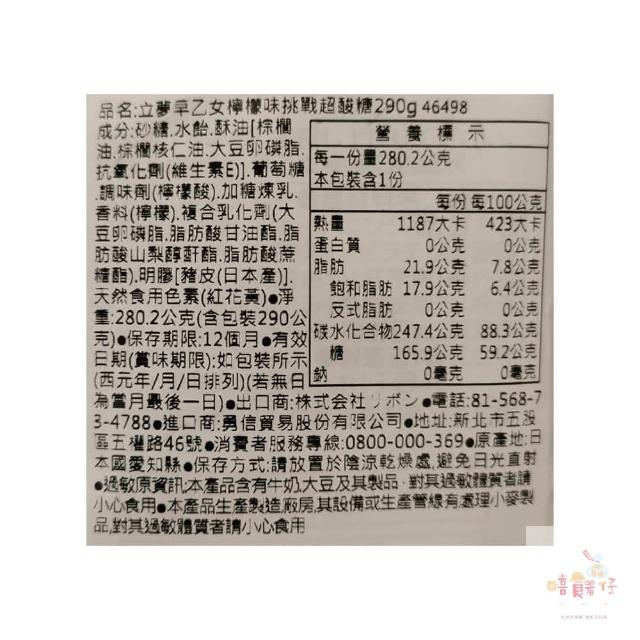 品名:立夢早乙女檸檬味挑戰超酸糖290g 46498
成分:砂糖.水飴.酥油[棕櫚
油.棕櫚核仁油.大豆卵磷脂.
抗氧化劑(維生素E)].葡萄糖
.調味劑(檸檬酸).加糖煉乳.
香料(檸檬).複合乳化劑(大
豆卵磷脂.脂肪酸甘油酯.脂
肪酸山梨醇酐酯.脂肪酸蔗
糖酯).明膠[豬皮(日本產)].
天然食用色素(紅花黃)●淨
重:280.2公克(含包裝290公
克)●保存期限:12個月●有效
日期(賞味期限):如包裝所示
(西元年/月/日排列)(若無日
營養標示
每一份量280.2公克
本包裝含1份
每份 每100公克
熱量 1187大卡 423大卡
蛋白質 0公克 0公克
脂肪 21.9公克 7.8公克
飽和脂肪 17.9公克 6.4公克
反式脂肪 0公克 0公克
碳水化合物247.4公克 88.3公克
糖 165.9公克 59.2公克
鈉 0毫克 0毫克
為當月最後一日)●出口商:株式会社リボン●電話:81-568-7
3-4788●進口商:勇信貿易股份有限公司●地址:新北市五股
區五權路46號●消費者服務專線:0800-000-369●原產地:日
本國愛知縣●保存方式:請放置於陰涼乾燥處,避免日光直射
●過敏原資訊:本產品含有牛奶,大豆及其製品，對其過敏體質者請
小心食用●本產品生產製造廠房,其設備或生產管線有處理小麥製
品,對其過敏體質者請小心食用